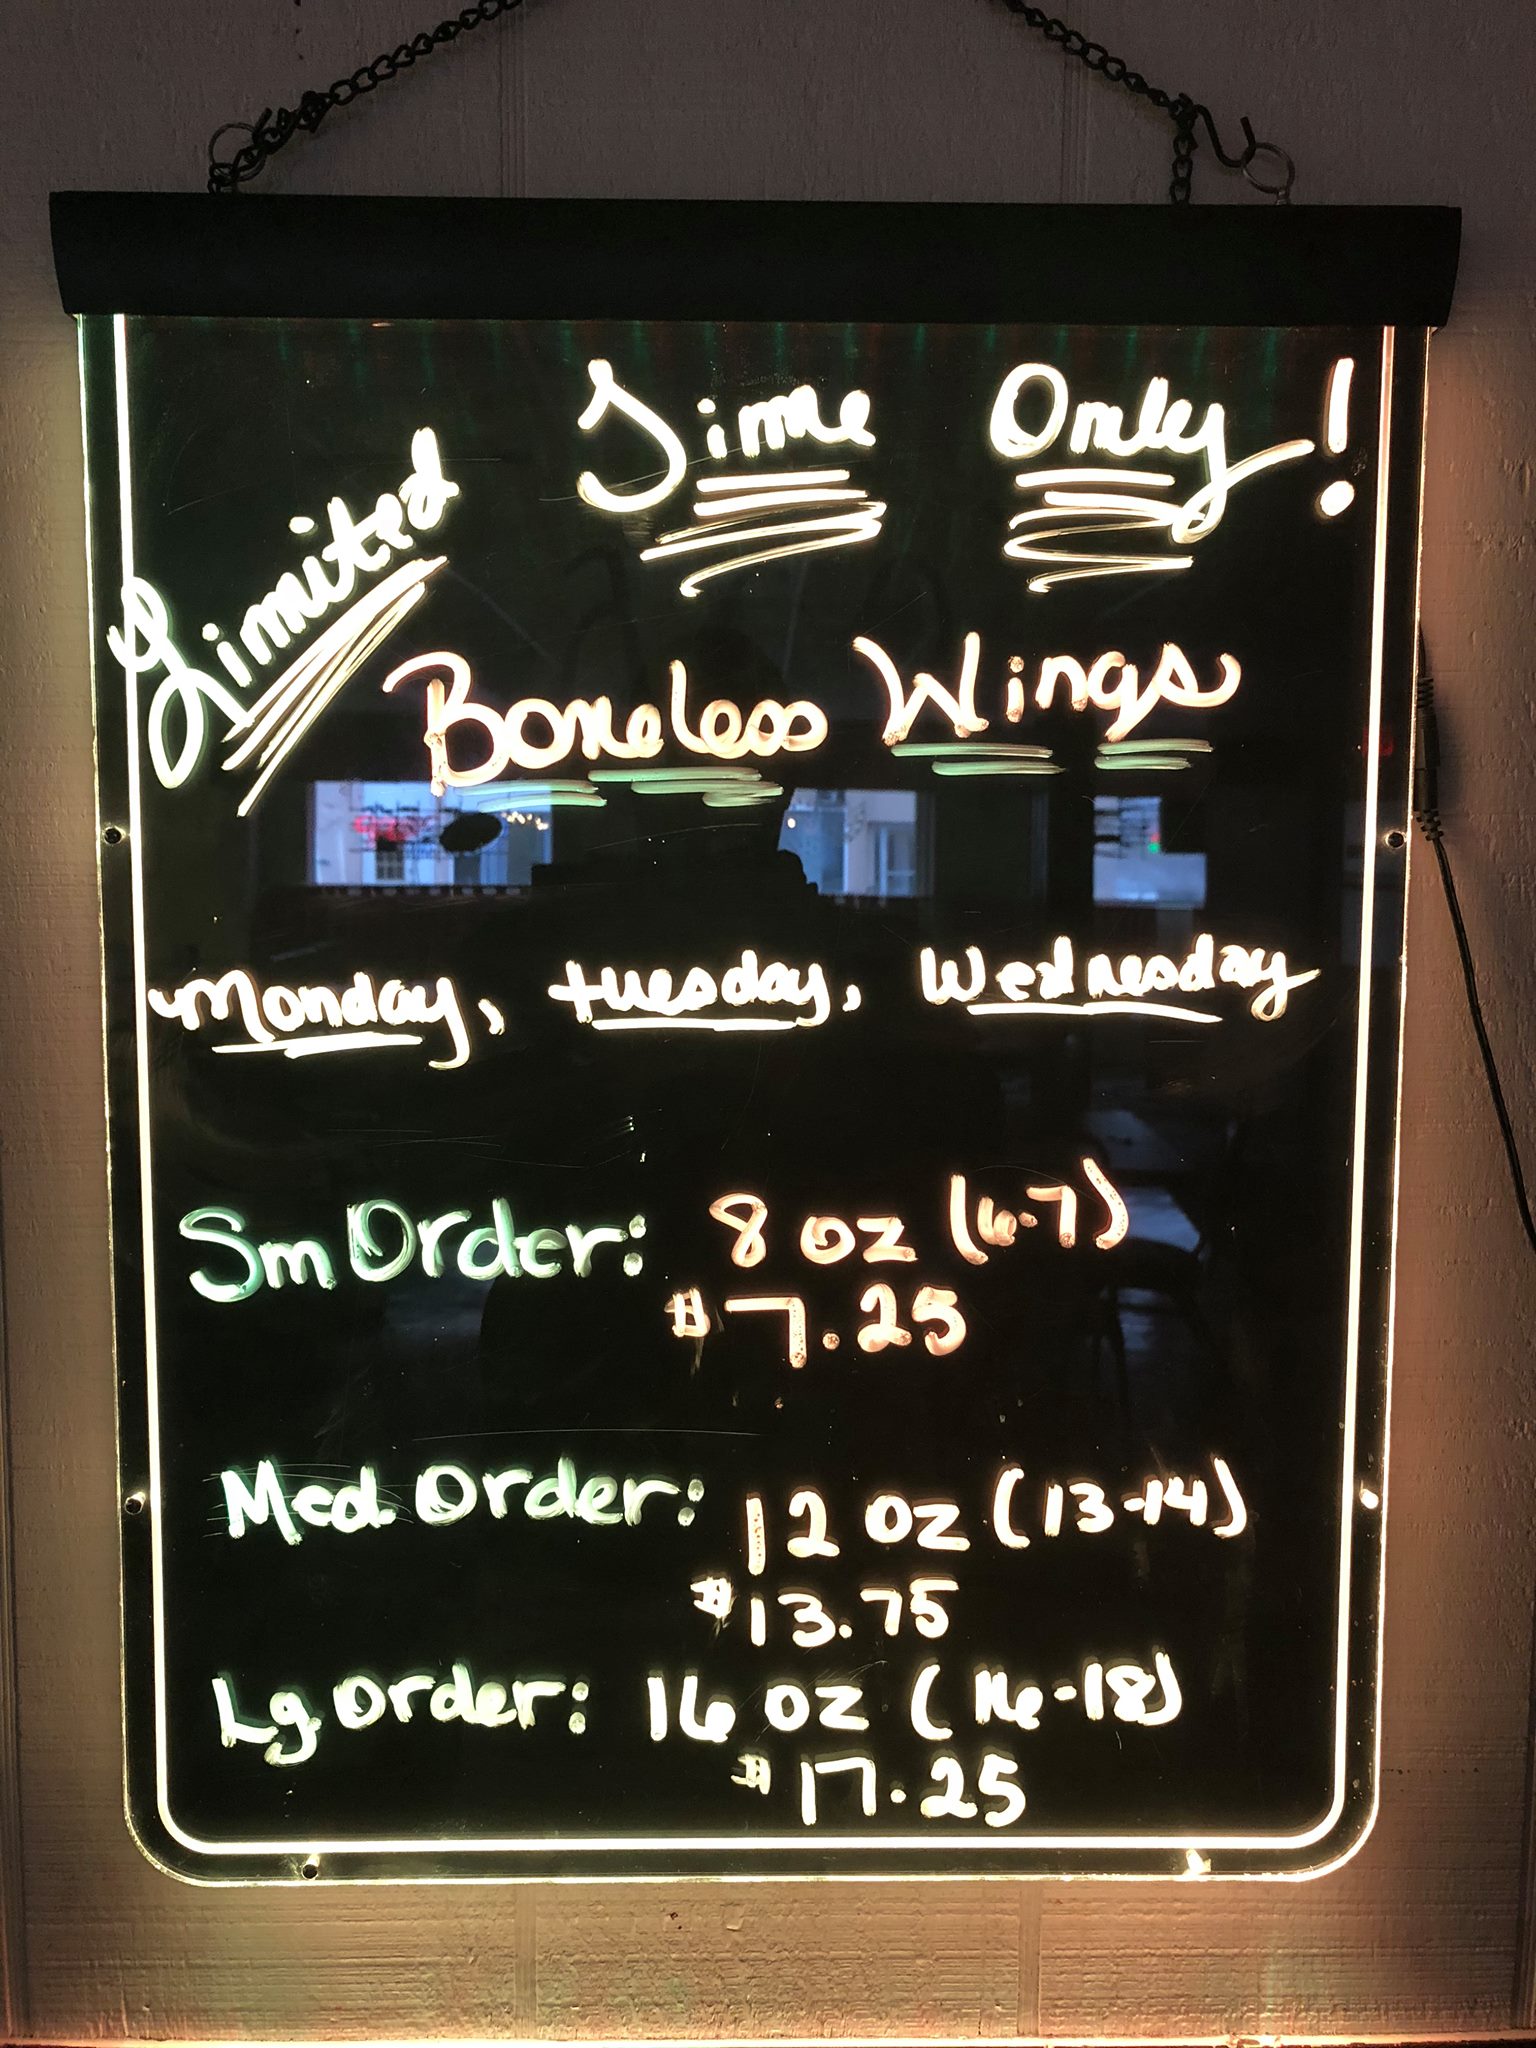 Limited Time Only!
Boneless Wings
Monday, tuesday, Wednesday
Sm Order: 8 oz (6-7)
$7.25
Med. Order: 12 oz (13-14)
$13.75
Lg Order: 16 oz (16-18)
$17.25